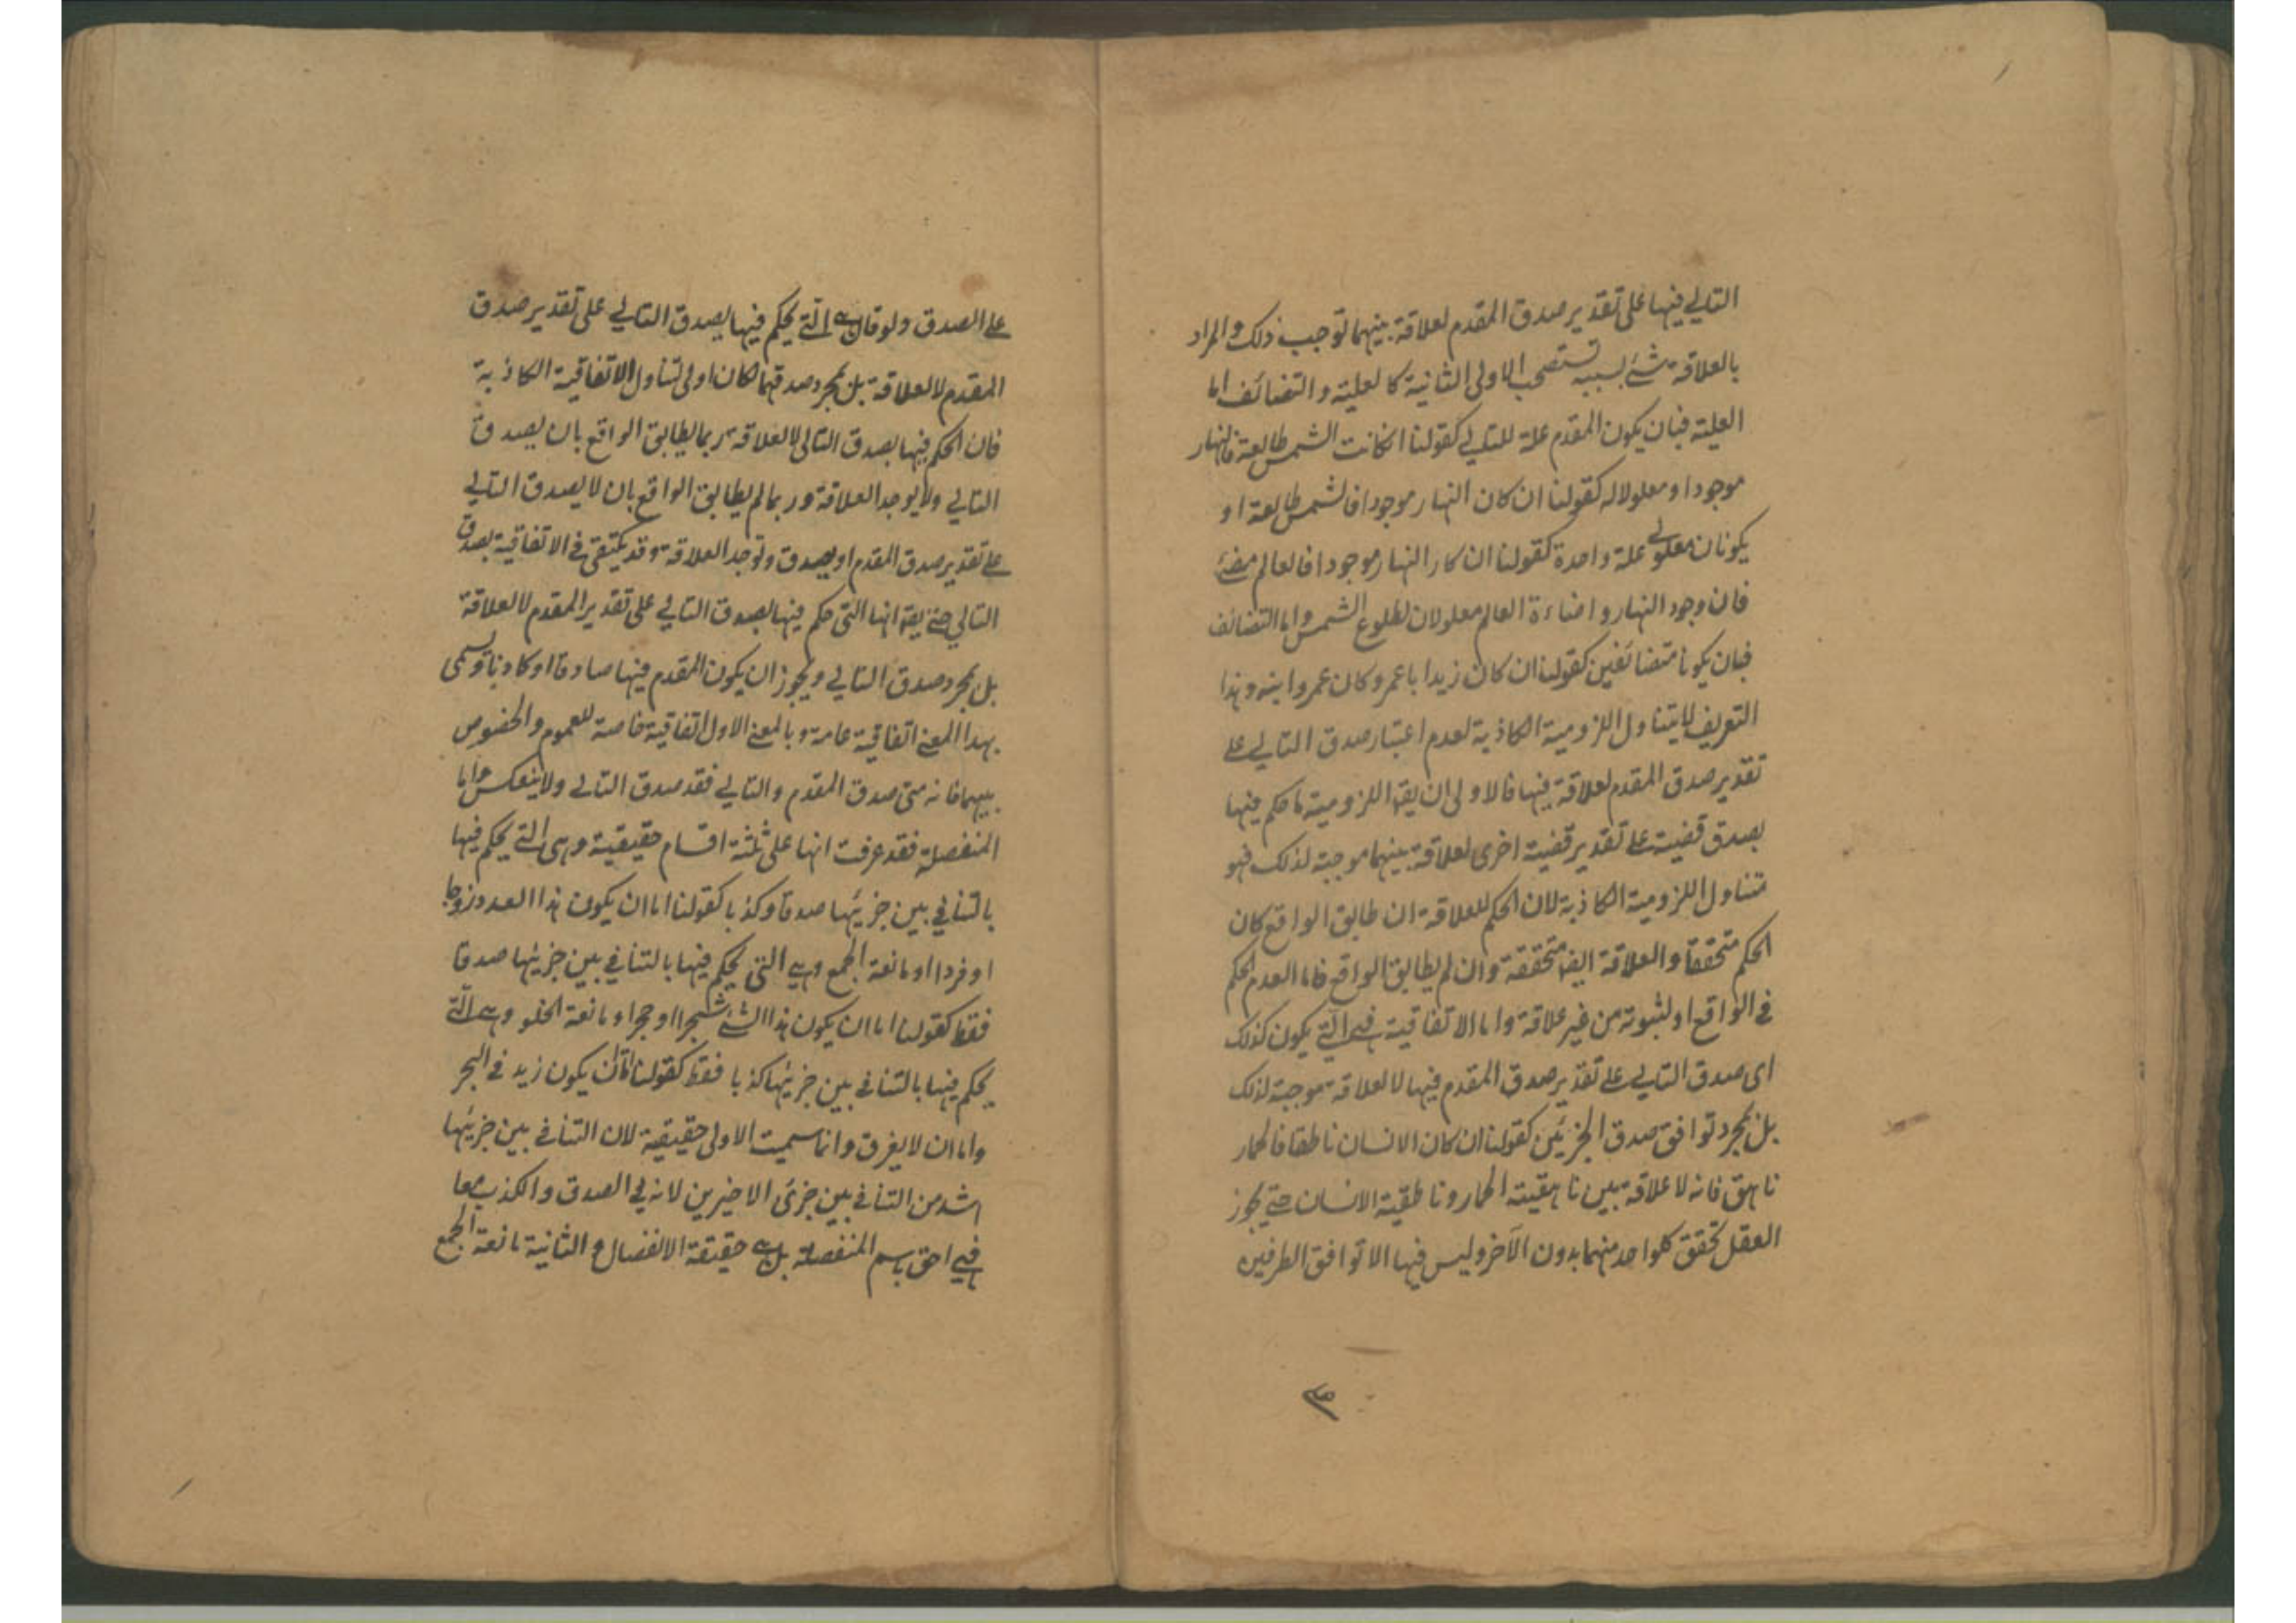 التالي فيها على تقدير صدق المقدم لعلاقة بينهما توجب ذلك والمراد
بالعلاقة شئ بسببه تستصحب الاولى الثانية كالعلية والتضائف اما
العلية فبان يكون المقدم علة للتالي كقولنا انكانت الشمس طالعة فالنهار
موجود او معلولا له كقولنا ان كان النهار موجودا فالشمس طالعة او
يكونان معلولي علة واحدة كقولنا ان كان النهار موجودا فالعالم مضئ
فان وجود النهار واضاءة العالم معلولان لطلوع الشمس واما التضائف
فبان يكونا متضائفين كقولنا ان كان زيدا با عمرو كان عمرو ابنه وهذا
التعريف لا يتناول اللزومية الكاذبة لعدم اعتبار صدق التالي على
تقدير صدق المقدم لعلاقة فيها فالاولى ان يقه اللزومية ما حكم فيها
بصدق قضية على تقدير قضية اخرى لعلاقة بينهما موجبة لذلك فهو
متناول اللزومية الكاذبة لان الحكم للعلاقة ان طابق الواقع كان
الحكم متحققا والعلاقة ايضا متحققة وان لم يطابق الواقع فاما لعدم الحكم
في الواقع او لثبوته من غير علاقة واما الاتفاقية فهي التي يكون كذلك
اى صدق التالي على تقدير صدق المقدم فيها لا لعلاقة موجبة لذلك
بل بمجرد توافق صدق الجزئين كقولنا ان كان الانسان ناطقا فالحمار
ناهق فانه لا علاقة بين ناهقية الحمار وناطقية الانسان حتى يجوز
العقل تحقق كلواحد منهما بدون الآخر وليس فيها الا توافق الطرفين
على الصدق ولو قال هي التي يحكم فيها بصدق التالي على تقدير صدق
المقدم لا لعلاقة بل بمجرد صدقهما لكان اولى لتناول الاتفاقية الكاذبة
فان الحكم فيها بصدق التالي لا لعلاقة ربما يطابق الواقع بان يصدق
التالي ولا يوجد العلاقة وربما لم يطابق الواقع بان لا يصدق التالي
على تقدير صدق المقدم او يصدق وتوجد العلاقة وقد يكتفى في الاتفاقية بصدق
التالي حتى يقه انها التى حكم فيها بصدق التالي على تقدير المقدم لا لعلاقة
بل بمجرد صدق التالي ويجوز ان يكون المقدم فيها صادقا او كاذبا وتسمى
بهذا المعنى اتفاقية عامة وبالمعنى الاول اتفاقية خاصة للعموم والخصوص
بينهما فانه متى صدق المقدم والتالي فقد صدق التالي ولا ينعكس واما
المنفصلة فقد عرفت انها على ثلثة اقسام حقيقية وهى التي يحكم فيها
بالتنافي بين جزئيها صدقا وكذبا كقولنا اما ان يكون هذا العدد زوجا
او فردا او مانعة الجمع وهي التى يحكم فيها بالتنافي بين جزئيها صدقا
فقط كقولنا اما ان يكون هذا الشئ شجرا او حجرا ومانعة الخلو وهى التي
يحكم فيها بالتنافي بين جزئيها كذبا فقط كقولنا اما ان يكون زيد في البحر
واما ان لا يغرق وانما سميت الاولى حقيقية لان التنافي بين جزئيها
اشد من التنافي بين جزئ الاخيرين لانه في الصدق والكذب معا
فهي احق باسم المنفصلة بل هي حقيقة الانفصال والثانية مانعة الجمع